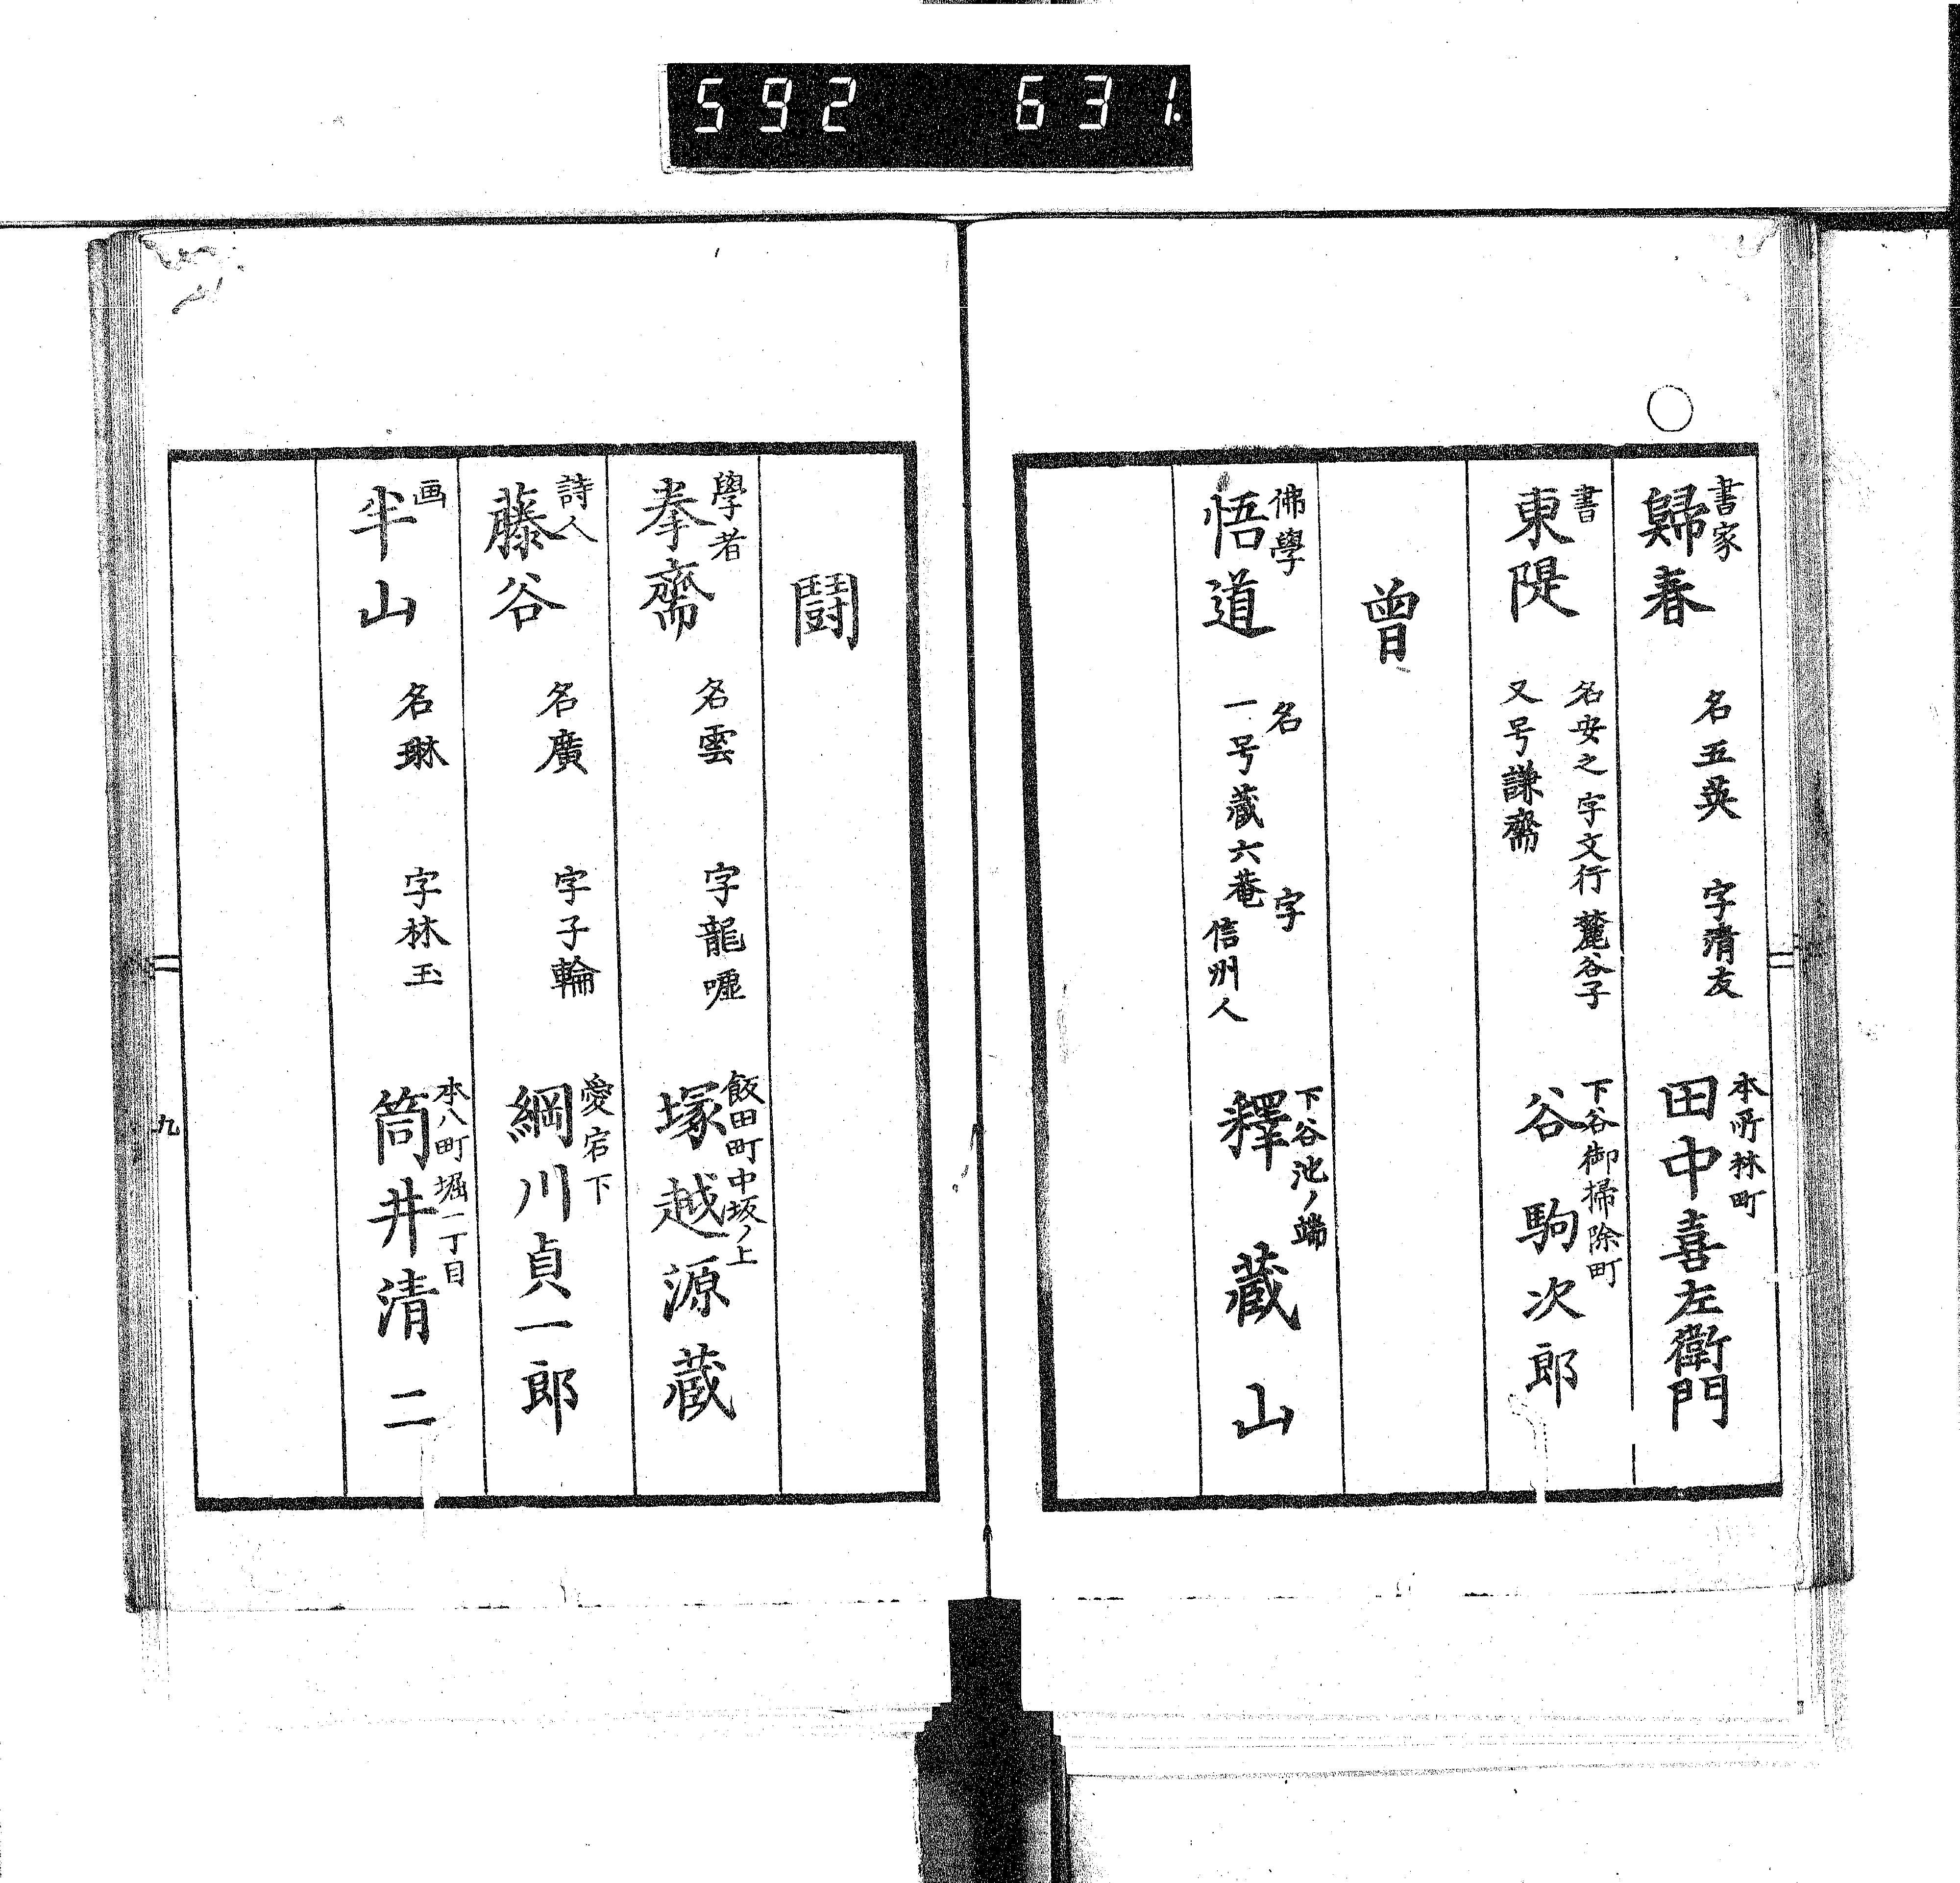 592 631.
書家
歸春 名五英 字清友
本所林町
田中喜左衛門
書
東隄 名安之 字文行 麓谷子
又号謙齋
下谷御掃除町
谷駒次郎
曾
佛學
悟道 名 字
一号蔵六菴 信州人
下谷池ノ端
釋蔵山
鬪
學者
拳齋 名雲 字龍嘘
飯田町中坂ノ上
塚越源蔵
詩人
藤谷 名廣 字子輪
愛宕下
綱川貞一郎
画
半山 名琳 字林玉
本八町堀一丁目
筒井清二
九